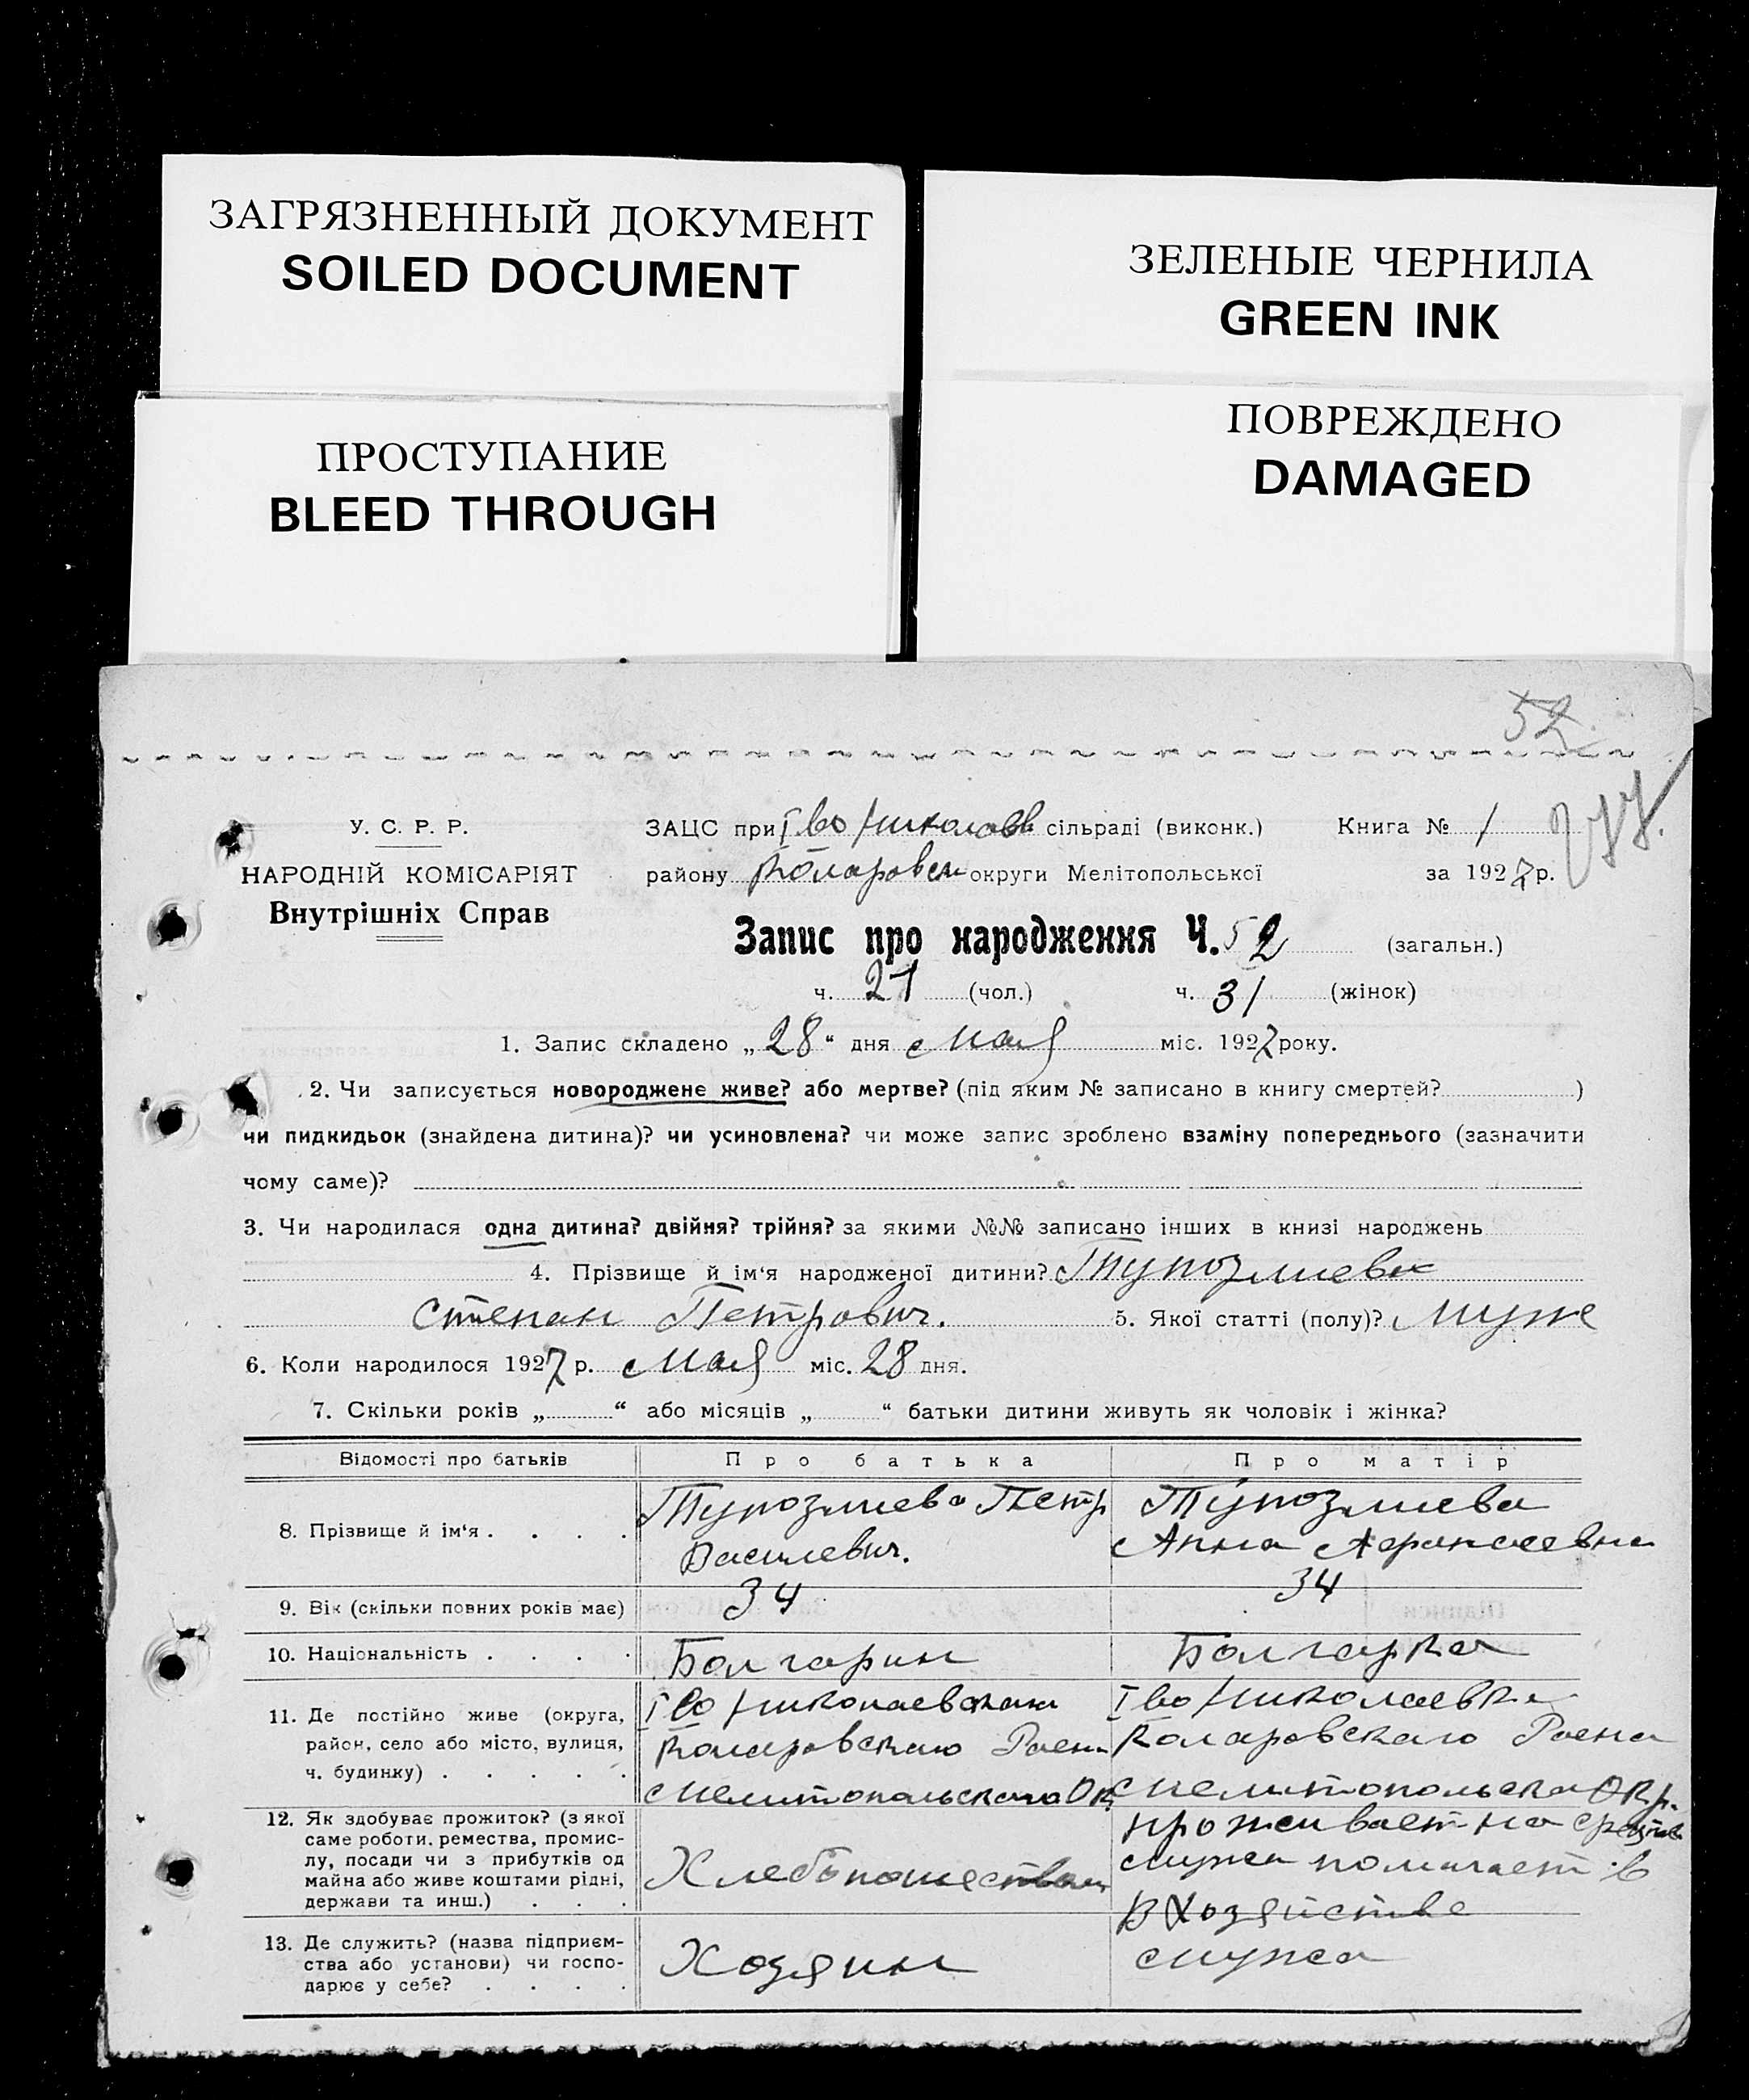 ЗАГРЯЗНЕННЫЙ ДОКУМЕНТ
SOILED DOCUMENT
ЗЕЛЕНЫЕ ЧЕРНИЛА
GREEN INK
ПРОСТУПАНИЕ
BLEED THROUGH
ПОВРЕЖДЕНО
DAMAGED
52
У. С. Р. Р.
НАРОДНІЙ КОМІСАРІЯТ
Внутрішніх Справ
ЗАЦС при Іво Николаев сільраді (виконк.) Книга № 1
району Коларовск округи Мелітопольської за 1927 р.
Запис про народження Ч. 52 (загальн.)
ч. 21 (чол.) ч. 31 (жінок)
1. Запис складено „28“ дня Мая міс. 1927 року.
2. Чи записується новороджене живе? або мертве? (під яким № записано в книгу смертей? )
чи пидкидьок (знайдена дитина)? чи усиновлена? чи може запис зроблено взаміну попереднього (зазначити
чому саме)?
3. Чи народилася одна дитина? двійня? трійня? за якими №№ записано інших в книзі народжень
4. Прізвище й ім‘я народженої дитини? Тупозлиев
Степан Петрович. 5. Якої статті (полу)? Муж
6. Коли народилося 1927 р. Мая міс. 28 дня.
7. Скільки років „ “ або місяців „ “ батьки дитини живуть як чоловік і жінка?
Відомості про батьків Про батька Про матір
8. Прізвище й ім‘я . . . . Тупозлиев Петр Василевич. Тупозлиева Анна Афанасевна
9. Вік (скільки повних років має) 34 34
10. Національність . . . . Болгарин Болгарка
11. Де постійно живе (округа,
район, село або місто, вулиця,
ч. будинку) . . . . .
Іво Николаевка
Коларовскаго Раена
Мелитопольскаго Ок
Іво Николаевка
Коларовскаго Раена
Мелитопольска Окр.
12. Як здобуває прожиток? (з якої
саме роботи, ремества, промис-
лу, посади чи з прибутків од
майна або живе коштами рідні,
держави та инш.) . . .
Хлебопашеством
проживает на средтв
мужа помагает в
в хозяйстве
13. Де служить? (назва підприєм-
ства або установи) чи госпо-
дарює у себе? . . . .
Хозяин
мужа